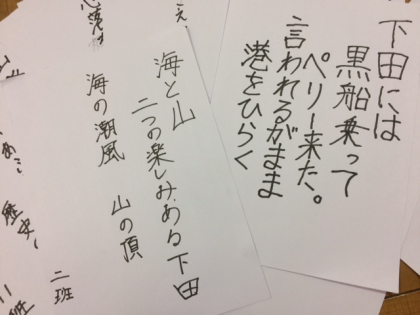 下田には
黒船乗って
ペリー来た。
言われるがまま
港をひらく
海と山
二つの楽しみある下田
海の潮風　山の頂
二班
歴史
班